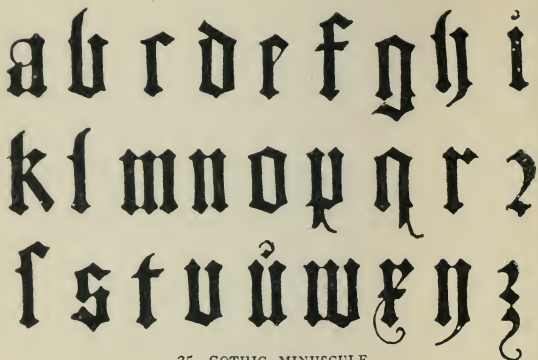 a b c d e f g h i
k l m n o p q r ꝛ
ſ s t v ů w x y z
GOTHIC MINUSCULE